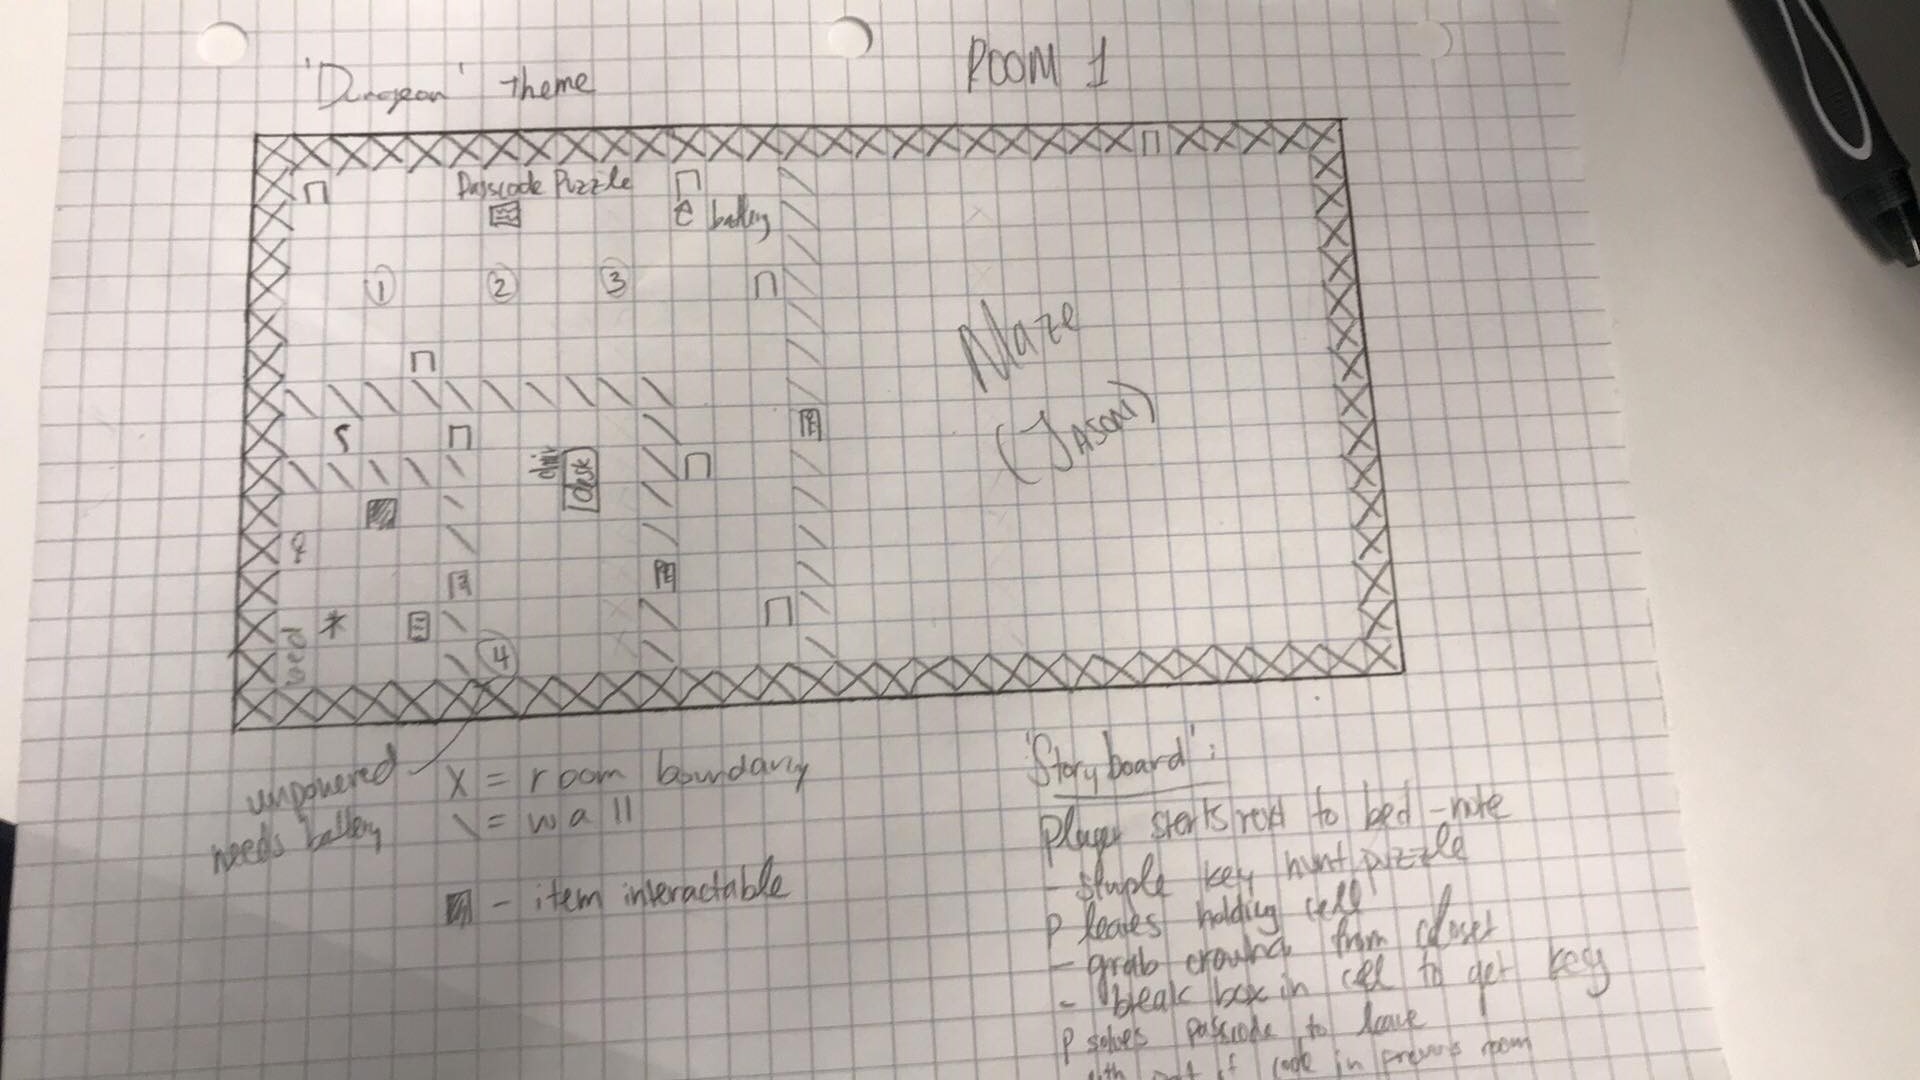 'Dungeon' theme
ROOM 1
Passcode Puzzle
battery
1 2 3
Maze
(JASON)
S
desk
*
bed
4
unpowered
needs battery
X = room boundary
\ = wall
- item interactable
'Storyboard':
Player starts next to bed - note
- simple key hunt puzzle
P leaves holding cell
- grab crowbar from closet
- break box in cell to get key
P solves passcode to leave
with part of code in previous room